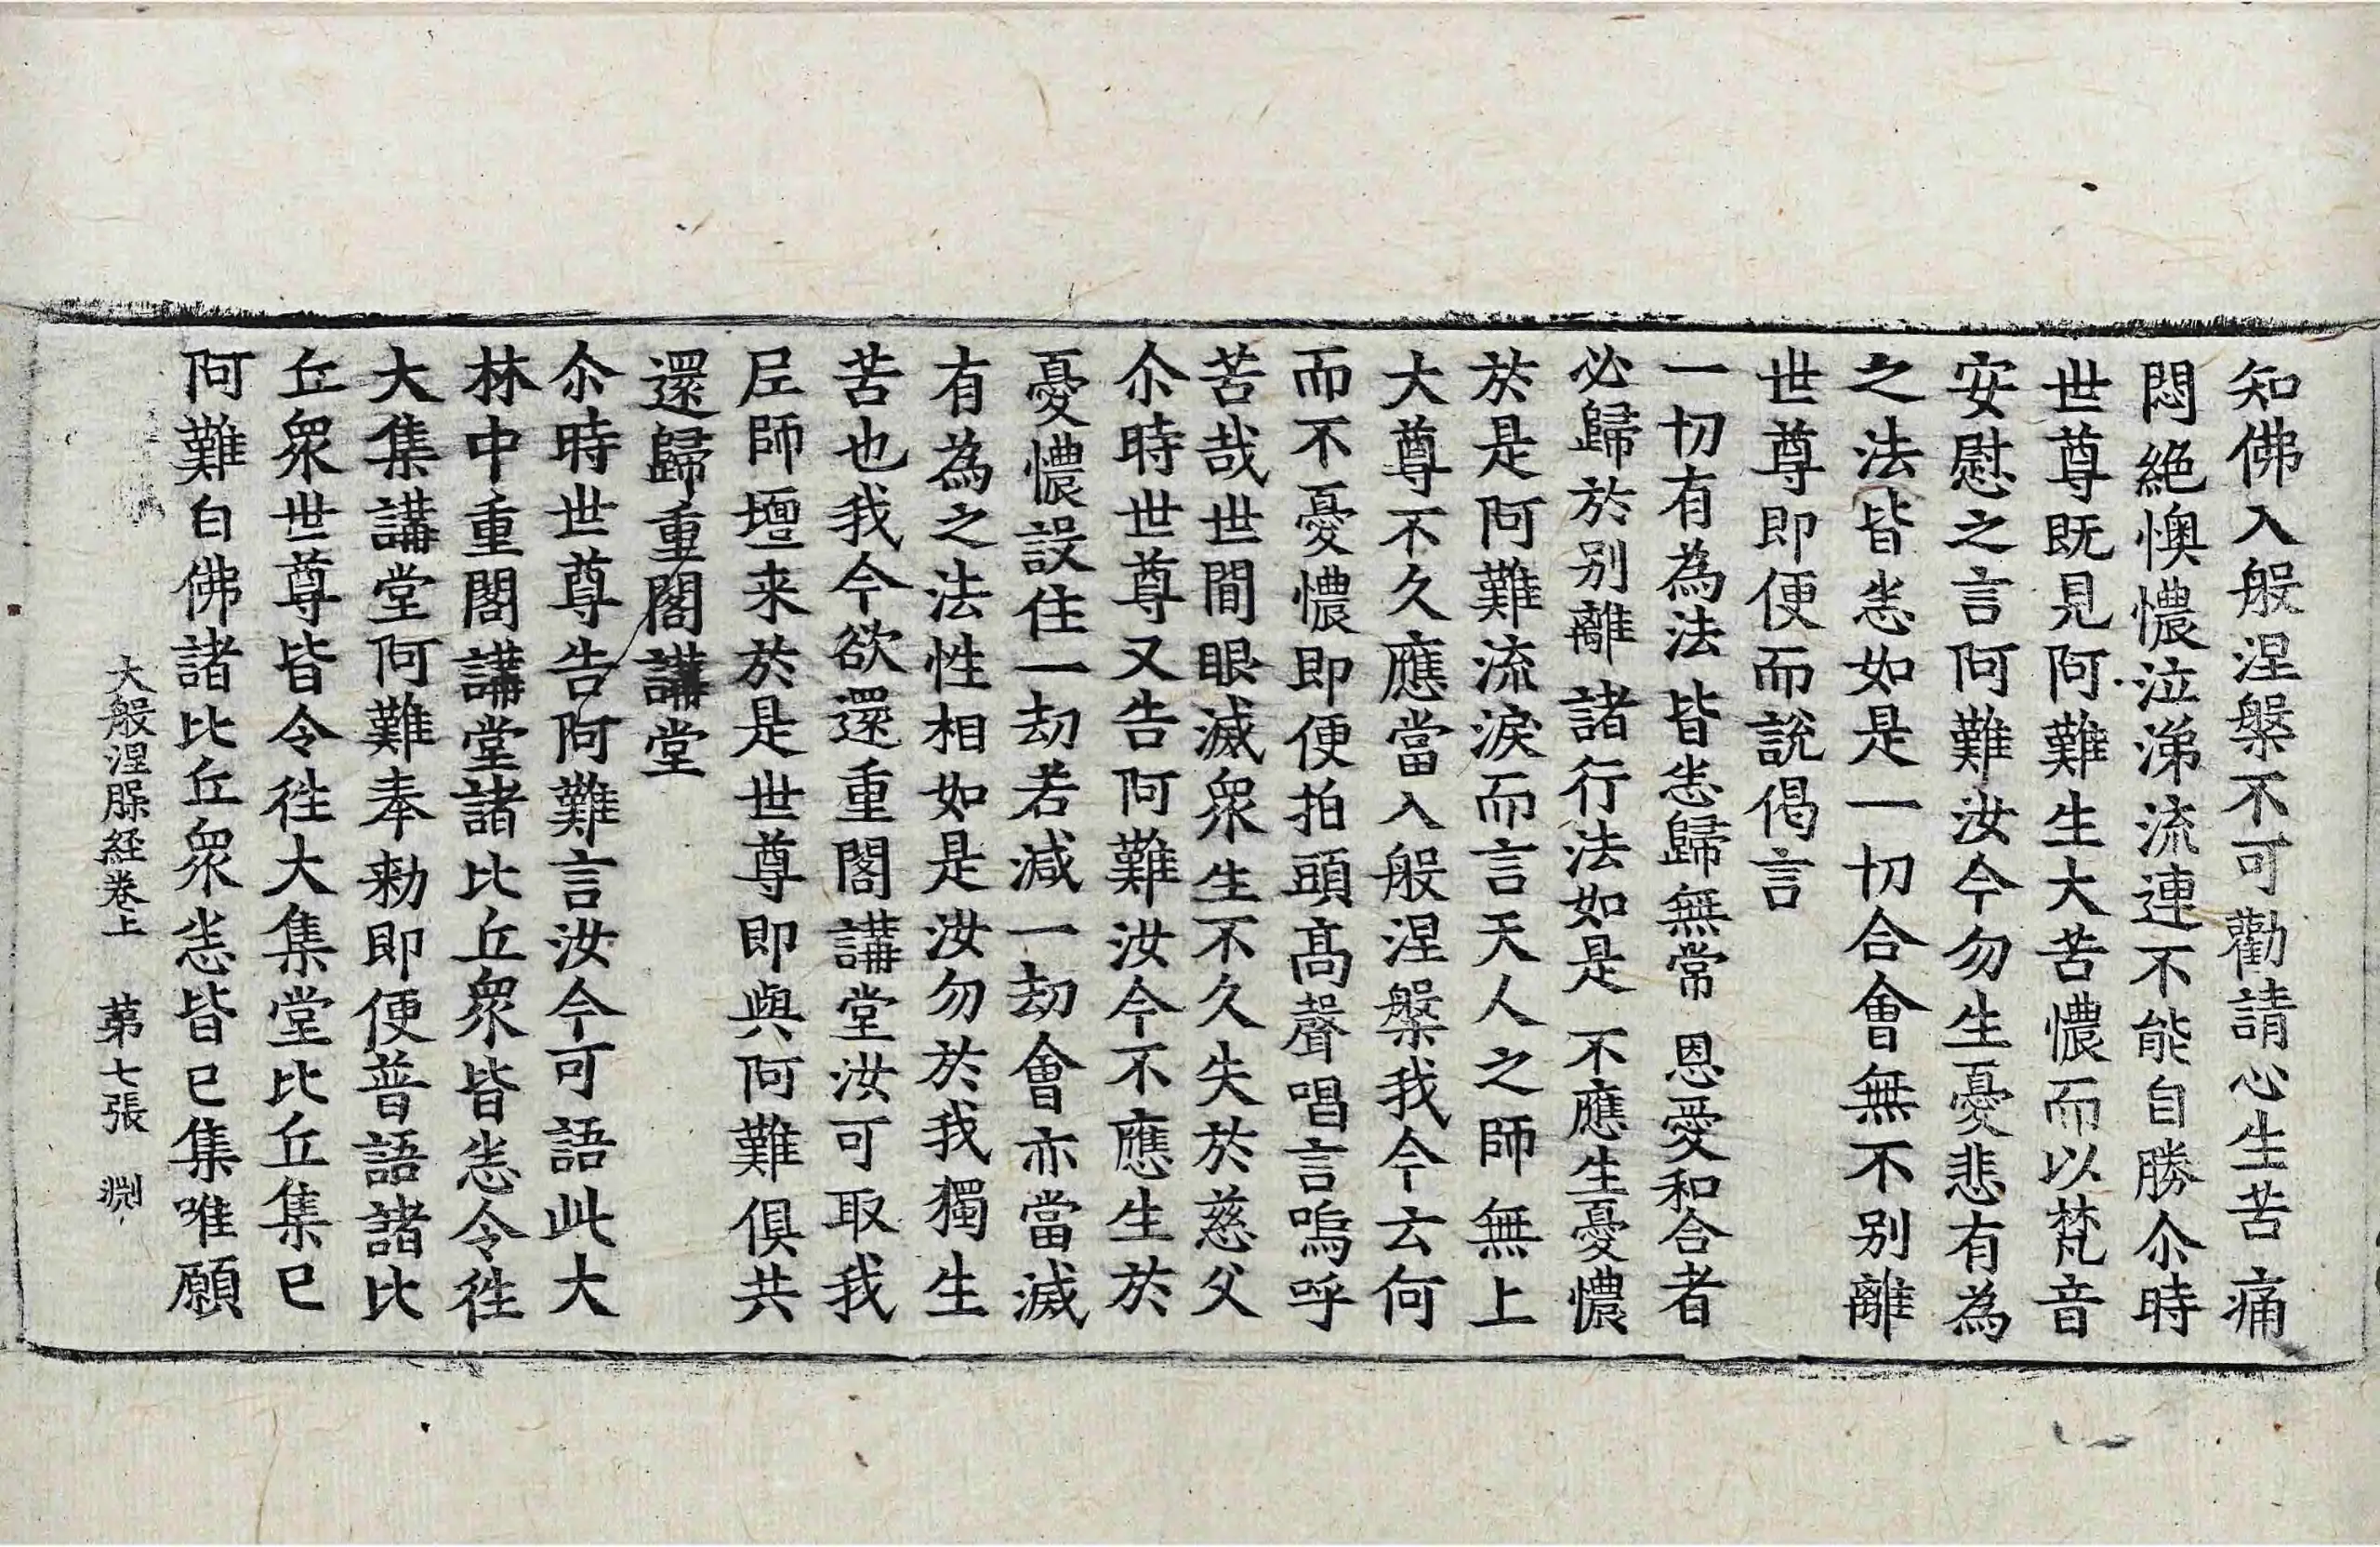 知佛入般涅槃不可勸請心生苦痛
悶絶懊憹泣涕流連不能自勝尒時
世尊既見阿難生大苦憹而以梵音
安慰之言阿難汝今勿生憂悲有為
之法皆悉如是一切合會無不别離
世尊即便而說偈言
一切有為法 皆悉歸無常 恩愛和合者
必歸於别離 諸行法如是 不應生憂憹
於是阿難流淚而言天人之師無上
大尊不久應當入般涅槃我今云何
而不憂憹即便拍頭髙聲唱言嗚呼
苦哉世間眼滅衆生不久失於慈父
尒時世尊又告阿難汝今不應生於
憂憹設住一劫若減一劫會亦當滅
有為之法性相如是汝勿於我獨生
苦也我今欲還重閣講堂汝可取我
尼師壇来於是世尊即與阿難俱共
還歸重閣講堂
尒時世尊告阿難言汝今可語此大
林中重閣講堂諸比丘衆皆悉令徃
大集講堂阿難奉勑即便普語諸比
丘衆世尊皆令徃大集堂比丘集已
阿難白佛諸比丘衆悉皆已集唯願
大般涅槃経卷上 苐七張 渕